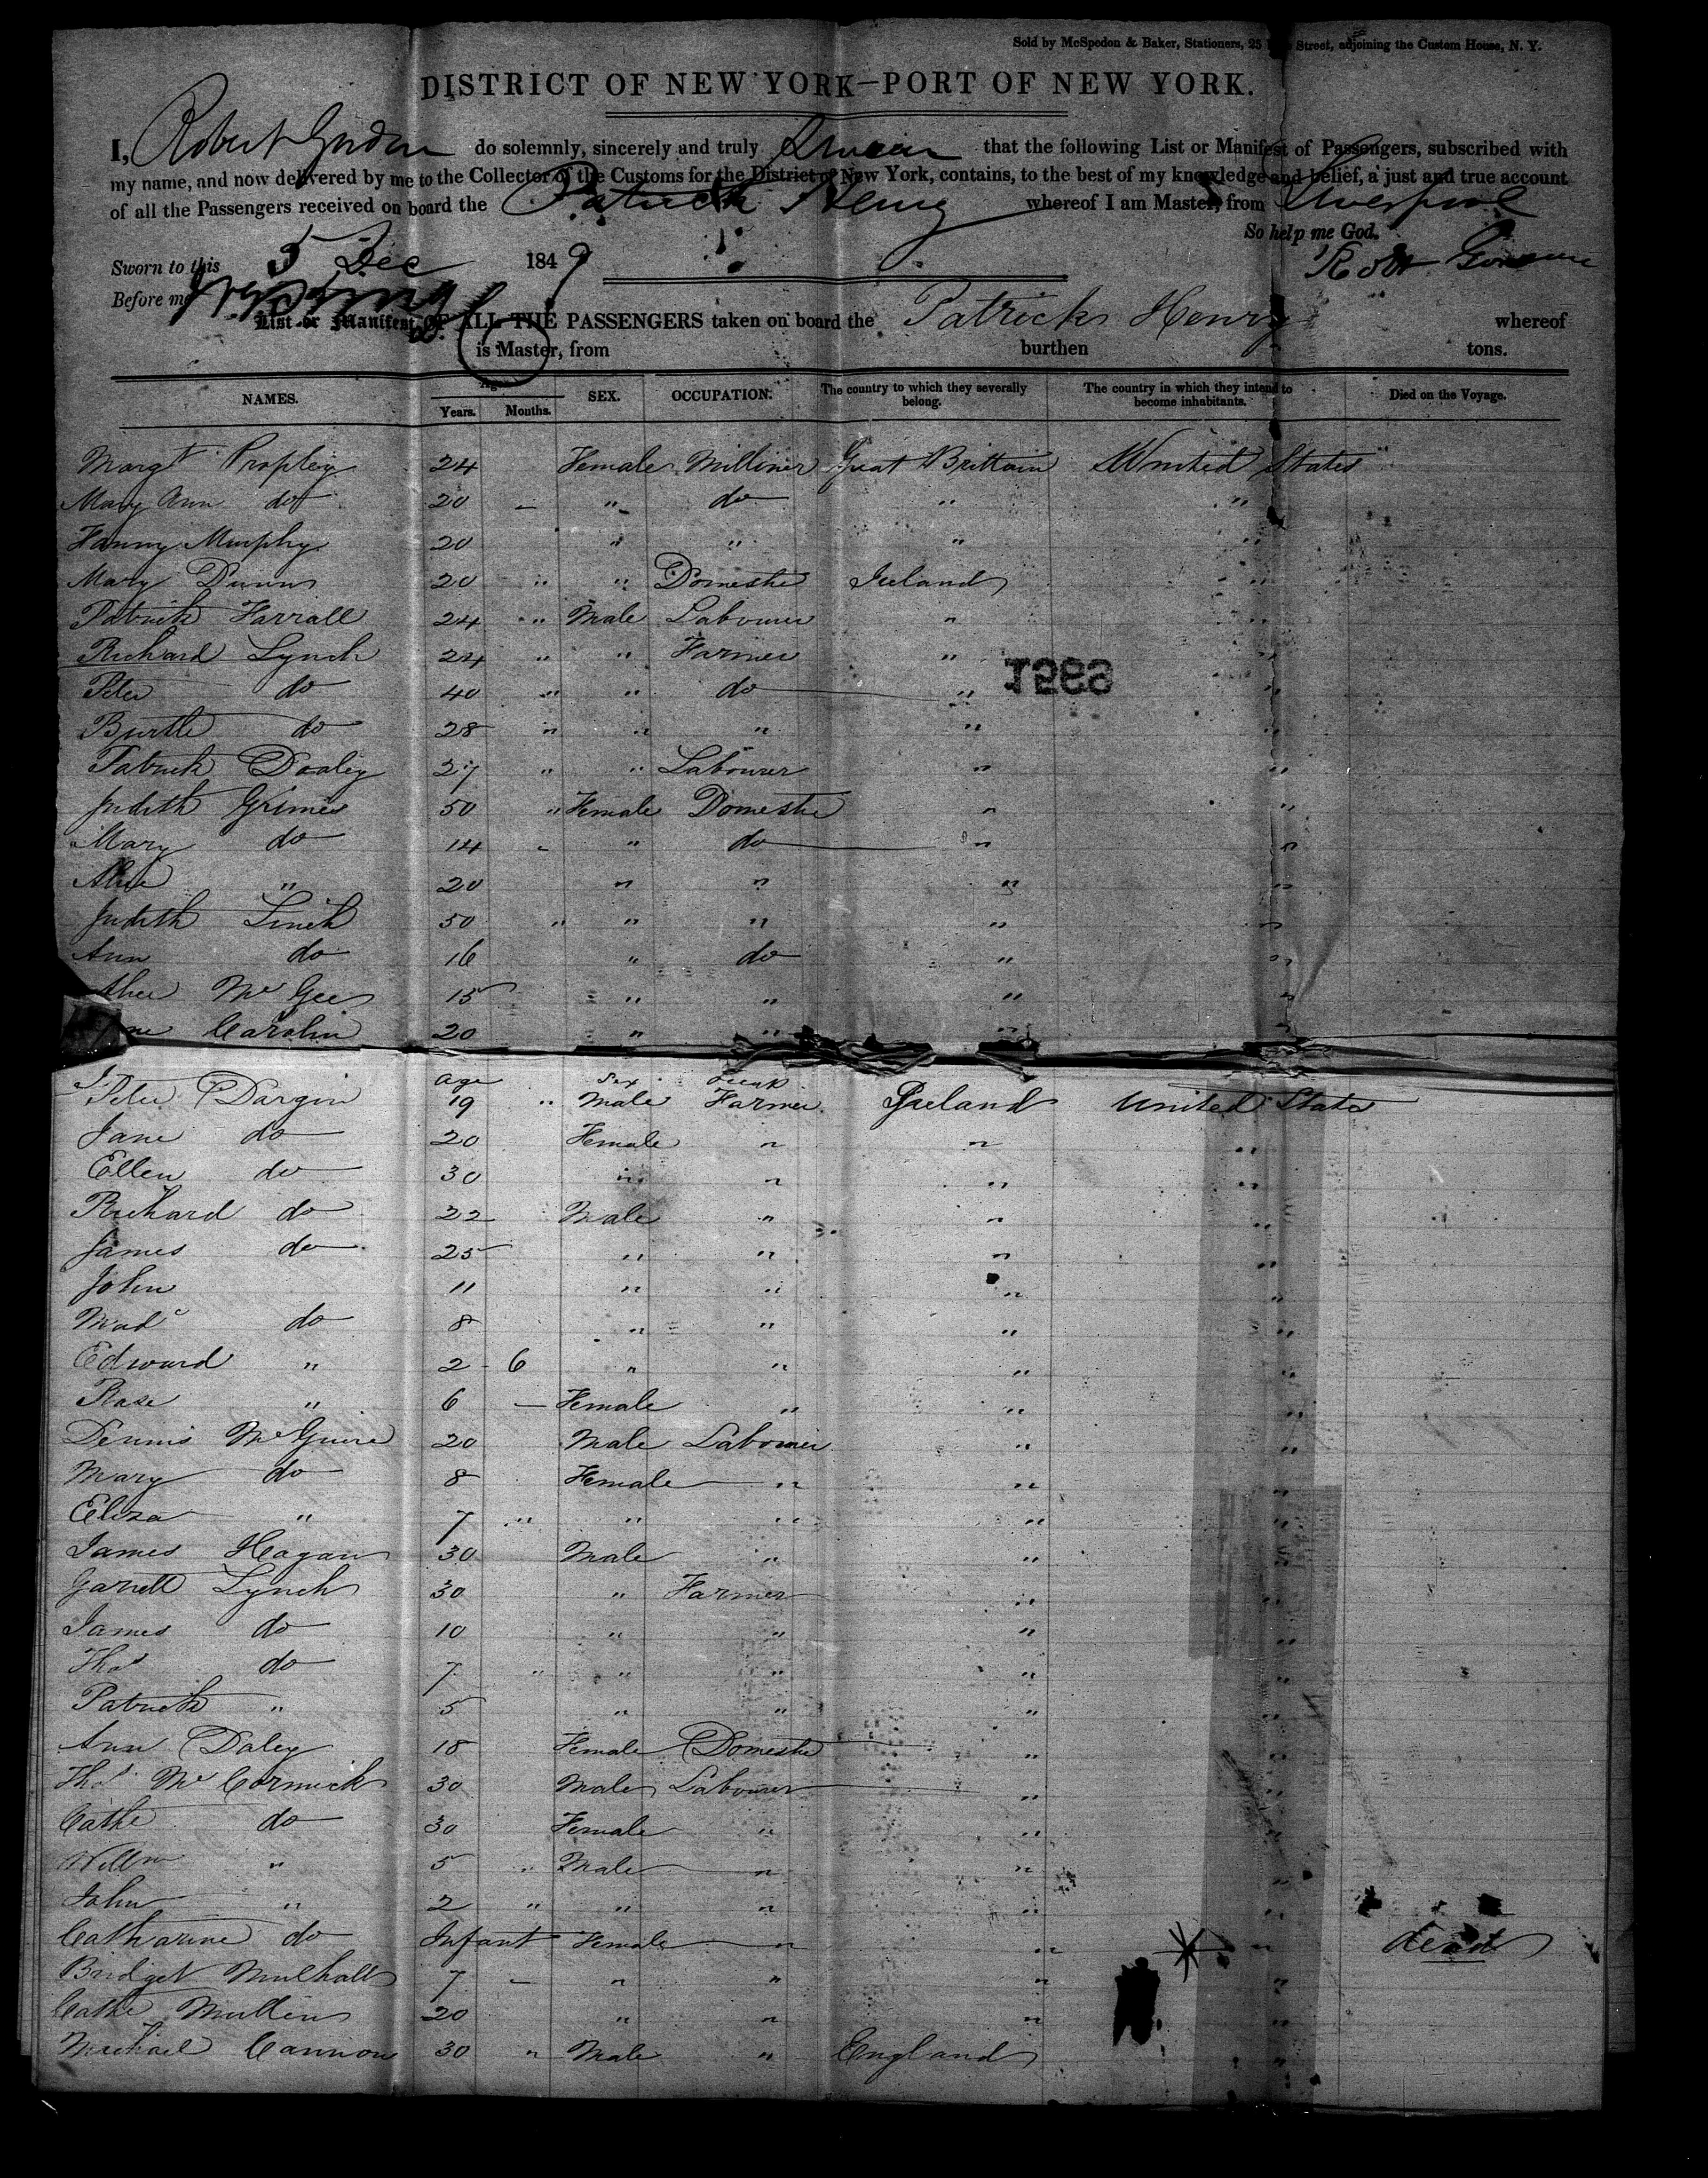 Sold by McSpedon & Baker, Stationers, 25 Street, adjoining the Custom House, N. Y.
DISTRICT OF NEW YORK—PORT OF NEW YORK.
I, Robert Gordon do solemnly, sincerely and truly Swear that the following List or Manifest of Passengers, subscribed with
my name, and now delivered by me to the Collector of the Customs for the District of New York, contains, to the best of my knowledge and belief, a just and true account
of all the Passengers received on board the Patrick Henry whereof I am Master, from Liverpool
So help me God.
Sworn to this 5 Dec 1849
Before me
List or Manifest OF ALL THE PASSENGERS taken on board the Patrick Henry whereof
is Master, from burthen tons.
NAMES. Age. Years. Months. SEX. OCCUPATION. The country to which they severally belong. The country in which they intend to become inhabitants. Died on the Voyage.
Margt Propley 24 Female Milliner Great Brittain United States
Mary Ann do 20 — " do " "
Fanny Murphy 20 " " " "
Mary Dunn 20 " " Domestic Ireland "
Patrick Farrall 24 " Male Labourer " "
Richard Lynch 24 " " Farmer " "
Peter do 40 " " do " "
Burtle do 28 " " " " "
Patrick Doaley 27 " " Labourer " "
Judith Grimes 50 " Female Domestic " "
Mary do 14 " " do " "
Alice " 20 " " " "
Judith Linch 50 " " " " "
Ann do 16 " do " "
McGee 15 " " " "
Carolin 20 " " " "
age Sex
Peter Dargin 19 " Male Farmer Ireland United States
Jane do 20 Female " " "
Ellen do 30 " " " "
Richard do 22 Male " " "
James do 25 " " " "
John 11 " " " "
do 8 " " " "
Edward " 2 6 " " " "
Rose " 6 — Female " " "
Dennis McGuire 20 Male Labourer " "
Mary do 8 Female " " "
Eliza " 7 " " " " "
James Hagan 30 Male " " "
Garrett Lynch 30 " Farmer " "
James do 10 " " " "
Thos do 7 " " " " "
Patrick " 5 " " " "
Ann Daley 18 Female Domestic " "
Thos McCormick 30 Male Labourer " "
Cathe do 30 Female " " "
Willm " 5 " Male " " "
John " 2 " " " " "
Catharine do Infant Female " " " dead
Bridget Mulhall 7 — " " " "
Cathe Mullen 20 " " " "
Michael Cannon 30 " Male " England "